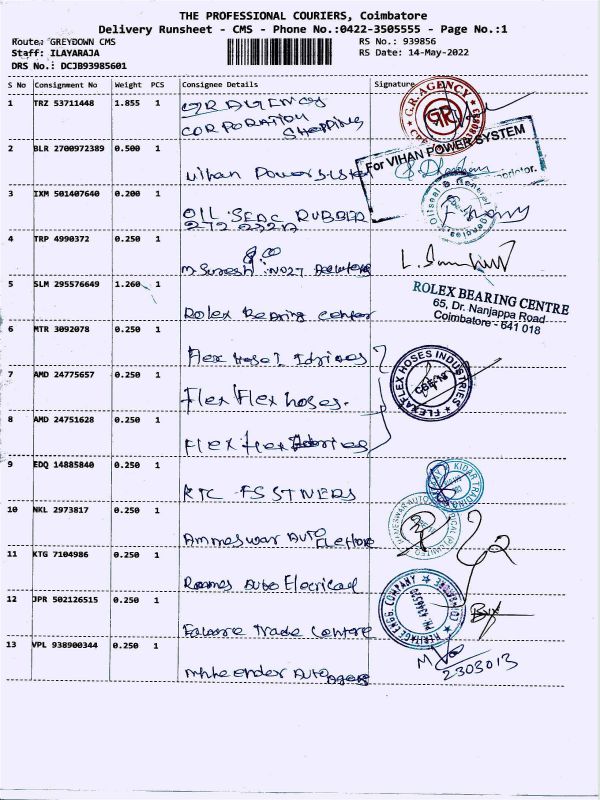 THE PROFESSIONAL COURIERS, Coimbatore
Delivery Runsheet - CMS - Phone No.:0422-3505555 - Page No.:1
Route: GREYDOWN CMS
RS No.: 939856
Staff: ILAYARAJA
RS Date: 14-May-2022
DRS No.: DCJB93985601
S No Consignment No Weight PCS Consignee Details Signature
1 TRZ 53711448 1.855 1 GR AGENCY
CORPORATION
SHOPPING
G.R. AGENCY
GR
2 BLR 2700972389 0.500 1 Vihan Power
For VIHAN POWER SYSTEM
3 IXM 501407640 0.200 1 OIL SEAL RUBBER
Oilseal & General Agencies
4 TRP 4990372 0.250 1 M. Suresh NO27
5 SLM 295576649 1.260 1 Rolex Bearing center
ROLEX BEARING CENTRE
65, Dr. Nanjappa Road
Coimbatore - 641 018
6 MTR 3092078 0.250 1 Flex Hosel
7 AMD 24775657 0.250 1 Flex Flex hoses.
FLEXAFLEX HOSES INDUSTRIES
CBE-18
8 AMD 24751628 0.250 1 Flex flex
9 EDQ 14885840 0.250 1 KTC FSSTNERS
10 NKL 2973817 0.250 1 Ammeswar AUTO
11 KTG 7104986 0.250 1 Auto Electrical
12 JPR 502126515 0.250 1 Trade Centre
HERITAGE ENG. COMPANY
13 VPL 938900344 0.250 1 Auto
2303013